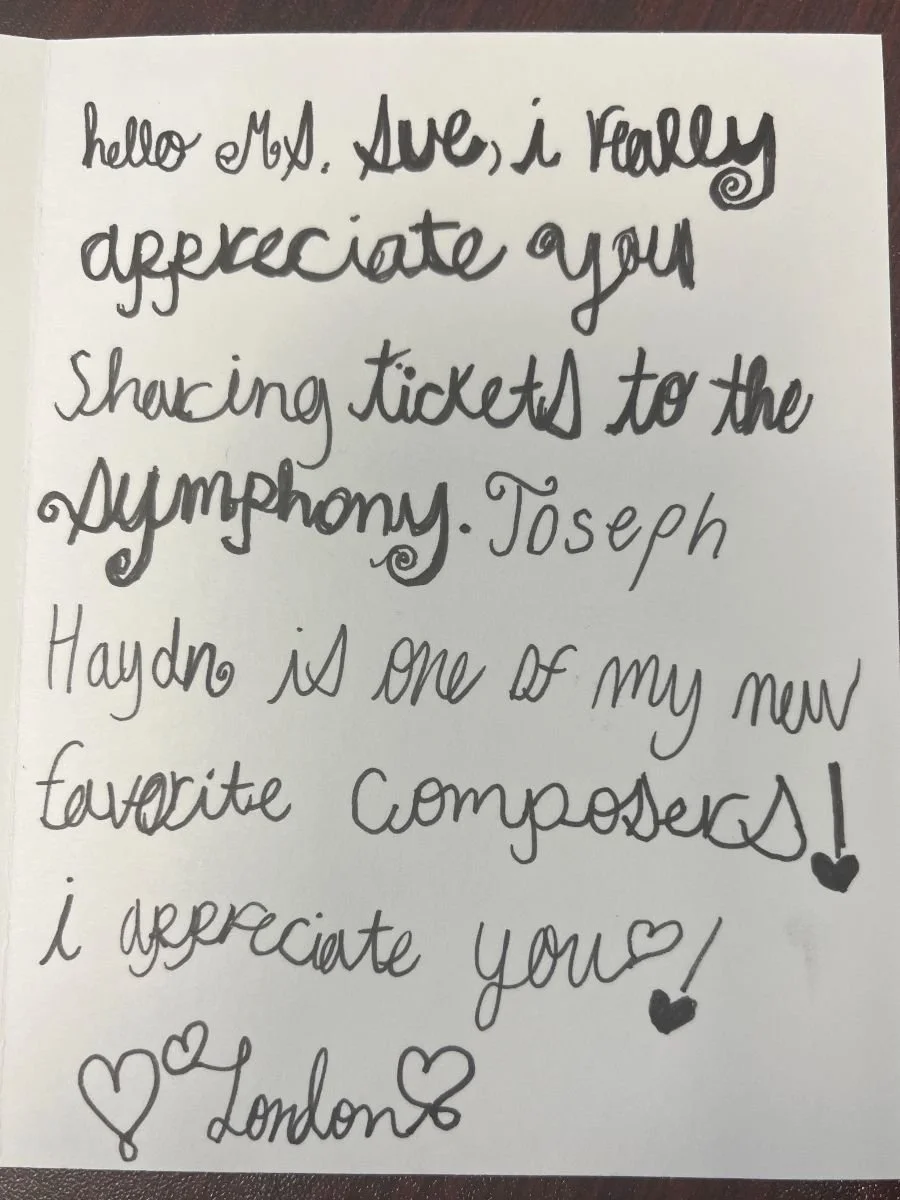 hello MS. Sue, i really
appreciate you
Sharing tickets to the
symphony. Joseph
Haydn is one of my new
favorite composers!
i appreciate you♡!
♡♡London♡